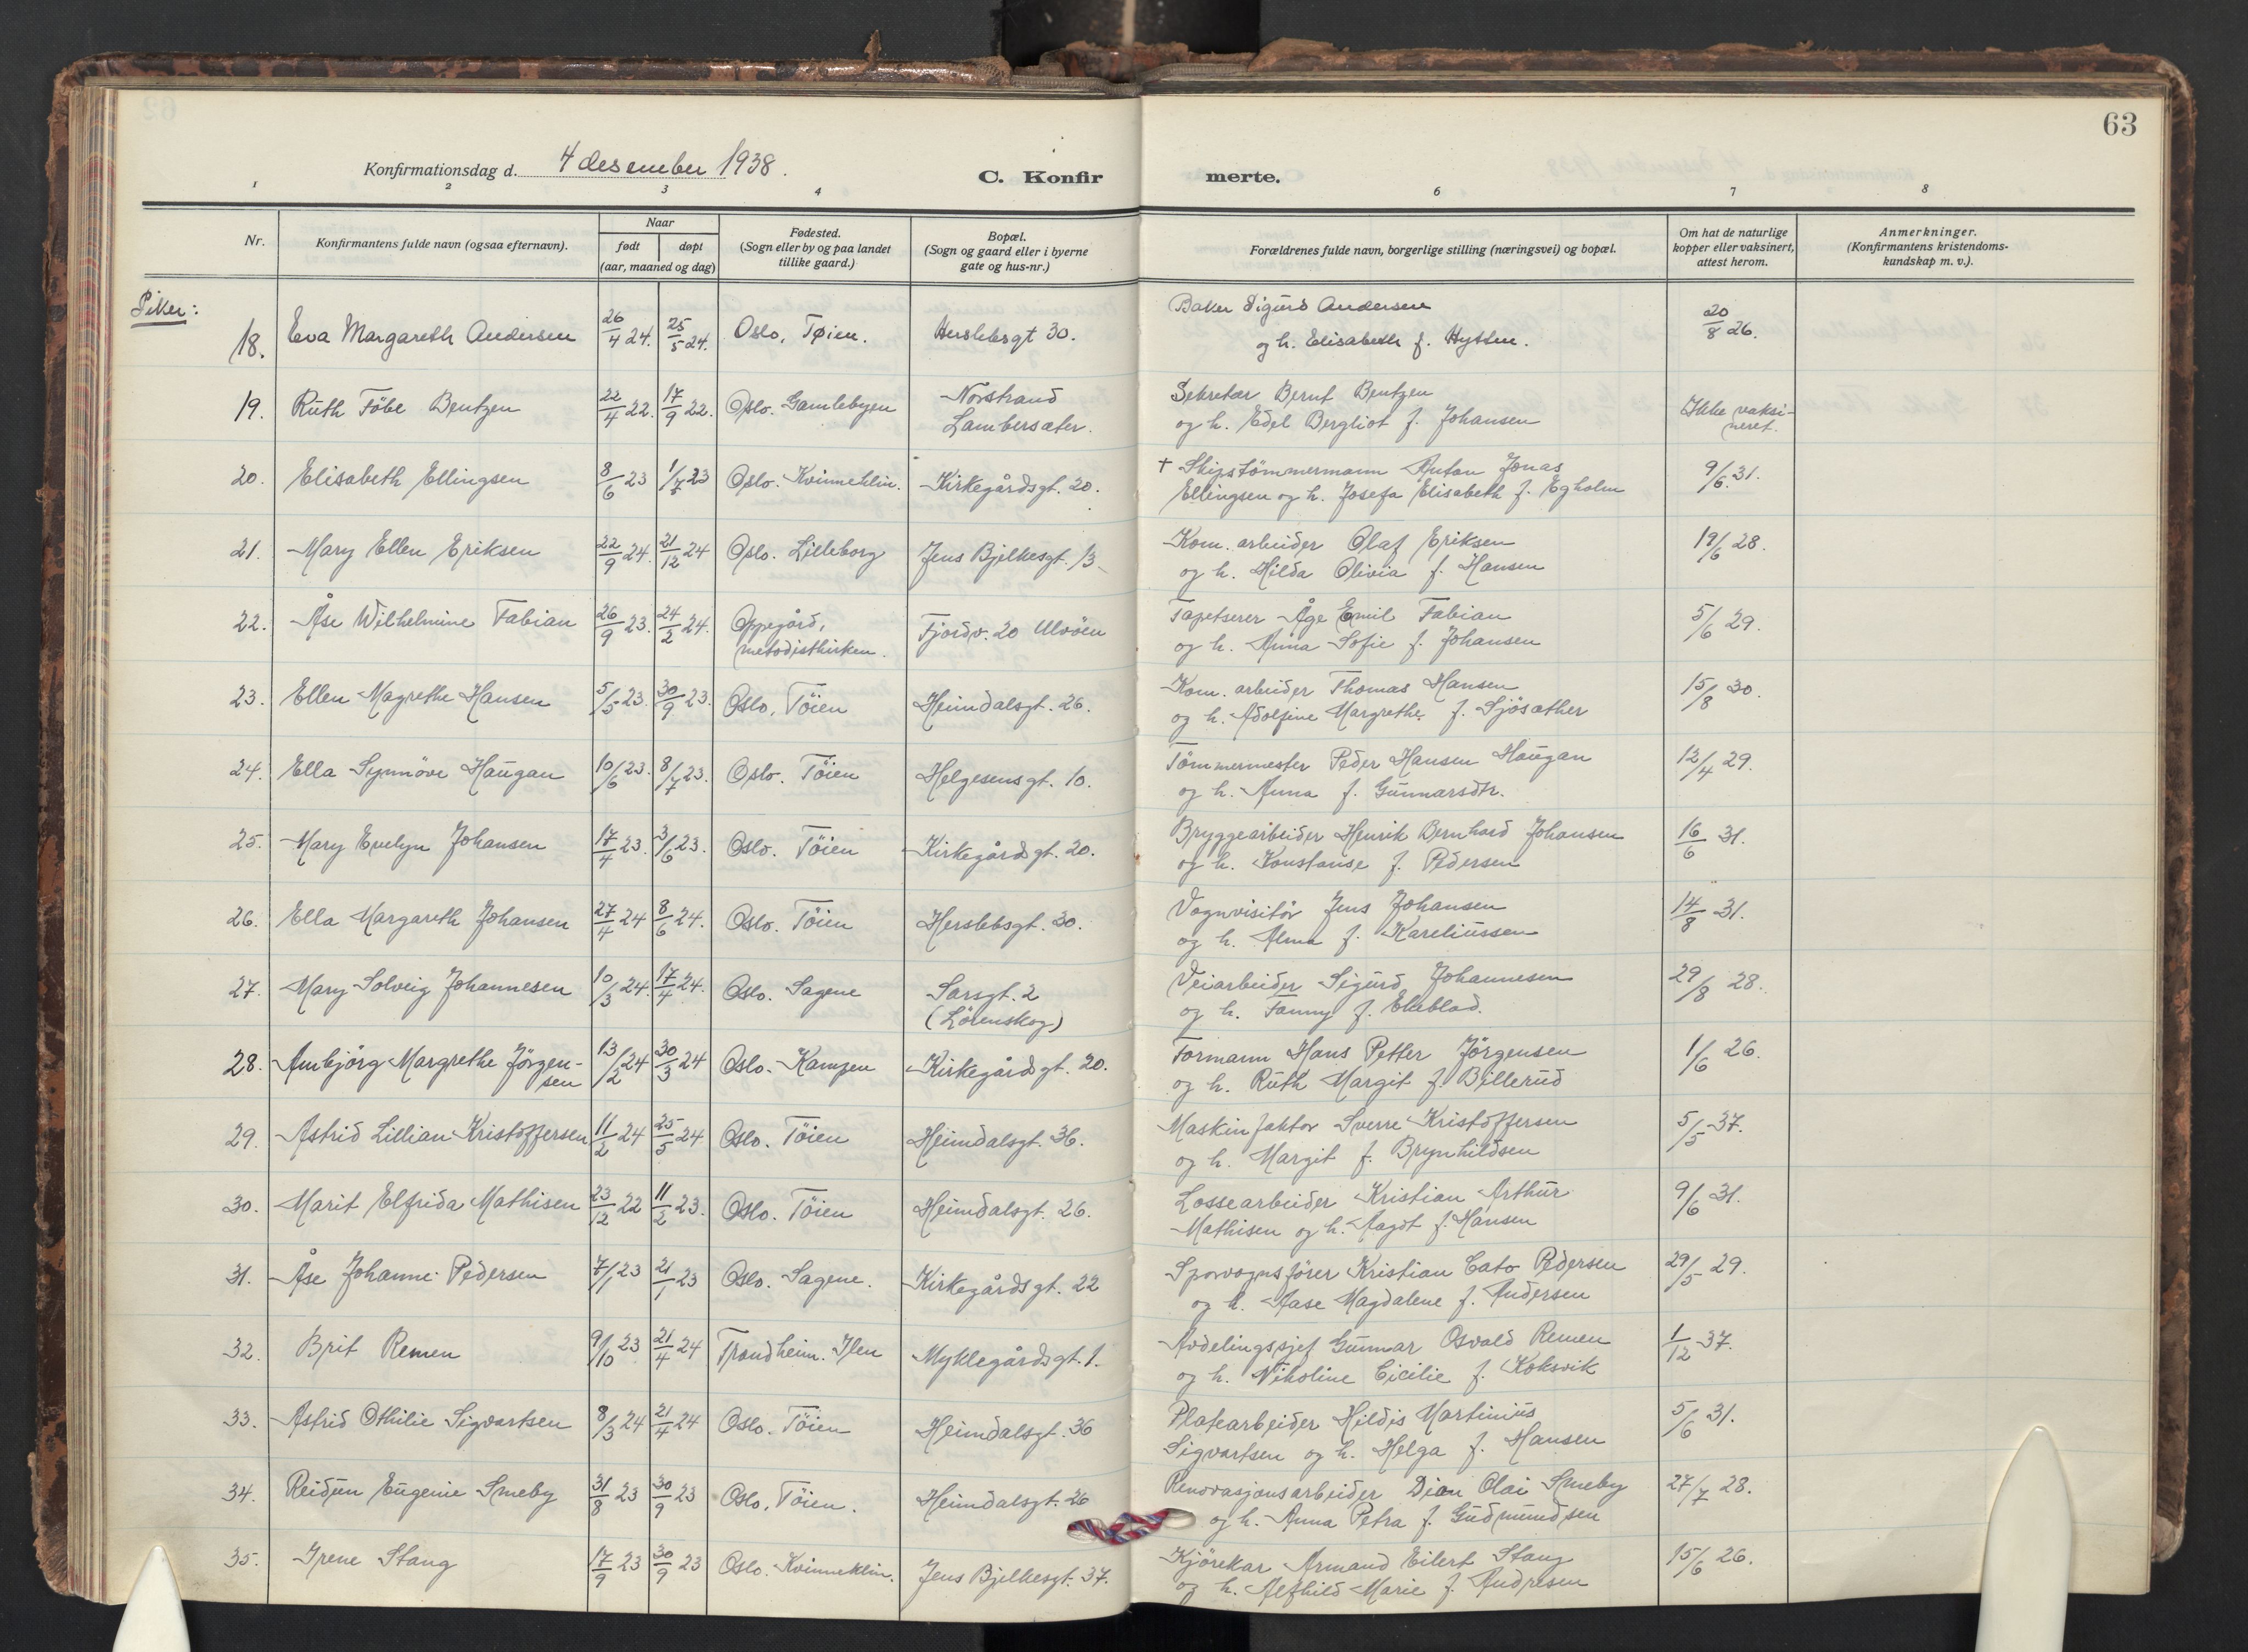 63
Konfirmationsdag d. 4 desember 1938.
C. Konfirmerte.
1 2 3 4 6 7 8
Nr. Konfirmantens fulde navn (ogsaa efternavn). Naar født døpt (aar, maaned og dag) Fødested. (Sogn eller by og paa landet tillike gaard.) Bopæl. (Sogn og gaard eller i byerne gate og hus-nr.) Forældrenes fulde navn, borgerlige stilling (næringsvei) og bopæl. Om hat de naturlige kopper eller vaksinert, attest herom. Anmerkninger. (Konfirmantens kristendoms-kundskap m. v.).
Piker:
18. Eva Margareth Andersen 26/4 24. 25/5 24. Oslo, Tøien. Herslebsgt 30. Baker Sigurd Andersen 20/8 26.
og h. Elisabeth f. Hytten.
19. Ruth Föbe Bentzen 22/4 22. 17/9 22. Oslo. Gamlebyen Norstrand Sekretær Bernt Bentzen Ikke vaksi-
Lambersæter. og h. Edel Bergliot f. Johansen neret.
20. Elisabeth Ellingsen 8/6 23 1/7 23 Oslo. Kvinneklin. Kirkegårdsgt. 20. + Skipstömmermann Anton Jonas 9/6 31.
Ellingsen og h. Josefa Elisabeth f. Egholm
21. Mary Ellen Eriksen 22/9 24. 21/12 24 Oslo. Lilleborg Jens Bjelkesgt. 13. Kom. arbeider Olaf Eriksen 19/6 28.
og h. Hilda Olivia f. Hansen
22. Åse Wilhelmine Fabian 26/9 23. 24/2 24. Oppegård, Fjordv. 20 Ulvöen Tapetserer Åge Emil Fabian 5/6 29.
metodistkirken. og h. Anna Sofie f. Johansen
23. Ellen Magrethe Hansen 5/5 23. 30/9 23. Oslo, Töien Heimdalsgt. 26. Kom. arbeider Thomas Hansen 15/8 30.
og h. Adolfine Margrethe f. Sjösæther
24. Ella Synnöve Haugan 10/6 23. 8/7 23. Oslo. Töien Helgesensgt. 10. Tömmermester Peder Hansen Haugan 12/4 29.
og h. Anna f. Gunnarsdtr.
25. Mary Evelyn Johansen 17/4 23. 3/6 23. Oslo. Töien Kirkegårdsgt. 20. Bryggearbeider Henrik Bernhard Johansen 16/6 31.
og h. Konstanse f. Pedersen
26. Ella Margareth Johansen 27/4 24 8/6 24. Oslo. Töien Herslebsgt. 30. Vognvisitör Jens Johansen 14/8 31.
og h. Alma f. Kareliussen
27. Mary Solveig Johannesen 10/3 24. 17/4 24. Oslo. Sagene Sarsgt. 2 Veiarbeider Sigurd Johannesen 29/8 28.
(Lörenskog) og h. Fanny f. Ekeblad.
28. Ambjörg Margrethe Jörgen- 13/2 24 30/3 24 Oslo. Kampen Kirkegårdsgt. 20. Formann Hans Petter Jörgensen 1/6 26.
sen og h. Ruth Margit f. Billerud
29. Astrid Lillian Kristoffersen 11/2 24 25/5 24 Oslo. Töien Heimdalsgt. 36. Maskinfaktor Sverre Kristoffersen 5/5 37.
og h. Margit f. Brynhildsen
30. Marit Elfrida Mathisen 23/12 22 11/2 23. Oslo. Töien Heimdalsgt. 26. Lossearbeider Kristian Arthur 9/6 31.
Mathisen og h. Aagot f. Hansen
31. Åse Johanne Pedersen 7/1 23 21/1 23 Oslo. Sagene. Kirkegårdsgt. 22 Sporvognsförer Kristian Cato Pedersen 29/5 29.
og h. Aase Magdalene f. Andersen
32. Brit Remen 9/10 23 21/4 24 Trondheim. Ilen Myklegårdsgt. 1. Avdelingssjef Gunnar Osvald Remen 1/12 37.
og h. Nikoline Cicilie f. Koksvik
33. Astrid Othilie Sigvartsen 8/3 24 21/4 24 Oslo. Töien Heimdalsgt. 36 Platearbeider Hildis Martinius 5/6 31.
Sigvartsen og h. Helga f. Hansen
34. Reidun Eugenie Smeby 31/8 23 30/9 23 Oslo, Töien. Heimdalsgt. 26 Renovasjonsarbeider Olai Smeby 27/7 28.
og h. Anna Petra f. Gudmundsen
35. Irene Stang 17/9 23 30/9 23 Oslo. Kvinneklin. Jens Bjelkesgt. 37. Kjörekar Armand Eilert Stang 15/6 26.
og h. Alfhild Marie f. Andresen